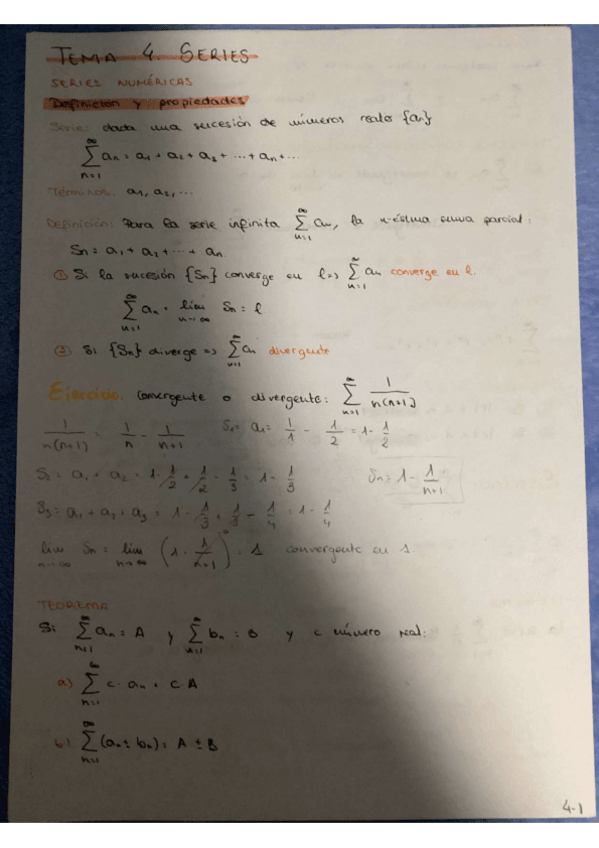 TEMA 4. SERIES
SERIES NUMÉRICAS
Definición y propiedades
Serie: dada una sucesión de números reales {an}
∞∑n=1 an = a1 + a2 + a3 + ... + an + ...
Términos: a1, a2, ...
Definición: Para la serie infinita ∞∑n=1 an, la n-ésima suma parcial:
Sn = a1 + a2 + ... + an
① Si la sucesión {Sn} converge en l => ∞∑n=1 an converge en l.
∞∑n=1 an = lim n→∞ Sn = l
② Si {Sn} diverge => ∞∑n=1 an divergente
Ejercicio. Convergente o divergente: ∞∑n=1 1/n(n+1)
1/n(n+1) = 1/n - 1/n+1 S1 = a1 = 1/1 - 1/2 = 1 - 1/2
S2 = a1 + a2 = 1 - 1/2 + 1/2 - 1/3 = 1 - 1/3 Sn = 1 - 1/n+1
S3 = a1 + a2 + a3 = 1 - 1/3 + 1/3 - 1/4 = 1 - 1/4
lim n→∞ Sn = lim n→∞ (1 - 1/n+1) = 1 convergente en 1.
TEOREMA
Si ∞∑n=1 an = A y ∞∑n=1 bn = B y c número real:
a) ∞∑n=1 c · an = c A
b) ∞∑n=1 (an ± bn) = A ± B
4-1